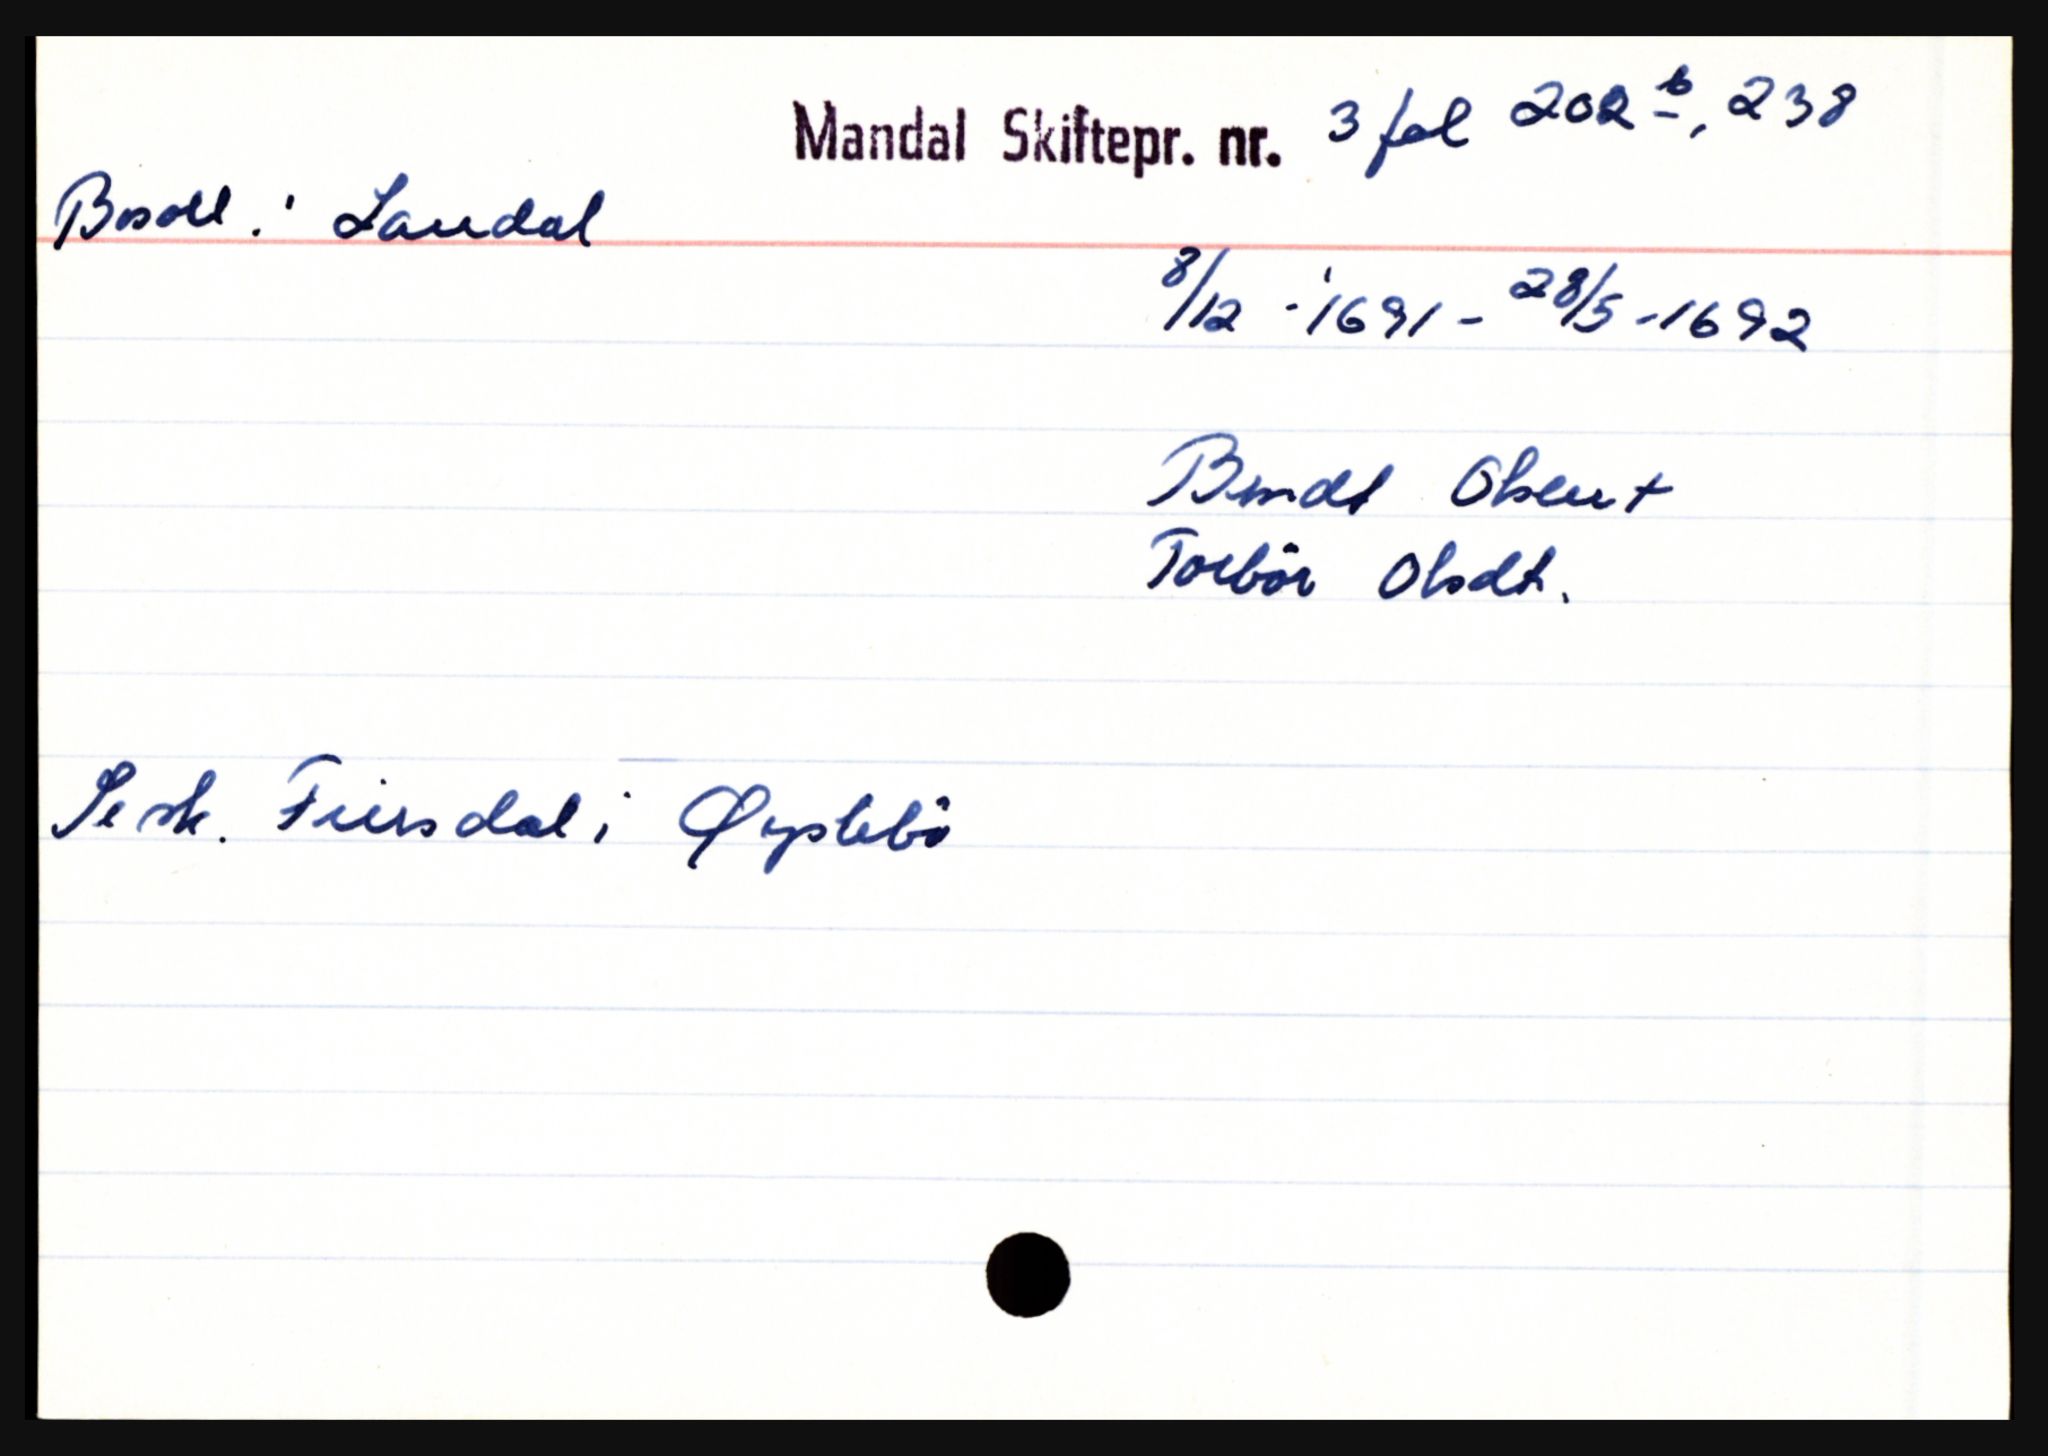 Mandal Skiftepr. nr. 3 fol 202 b, 238
Bosvoll i Laudal
8/12 - 1691 - 28/5 - 1692
Berndt Olsen +
Torbör Olsdt.
Se sk. Fuirsdal i Øyslebö